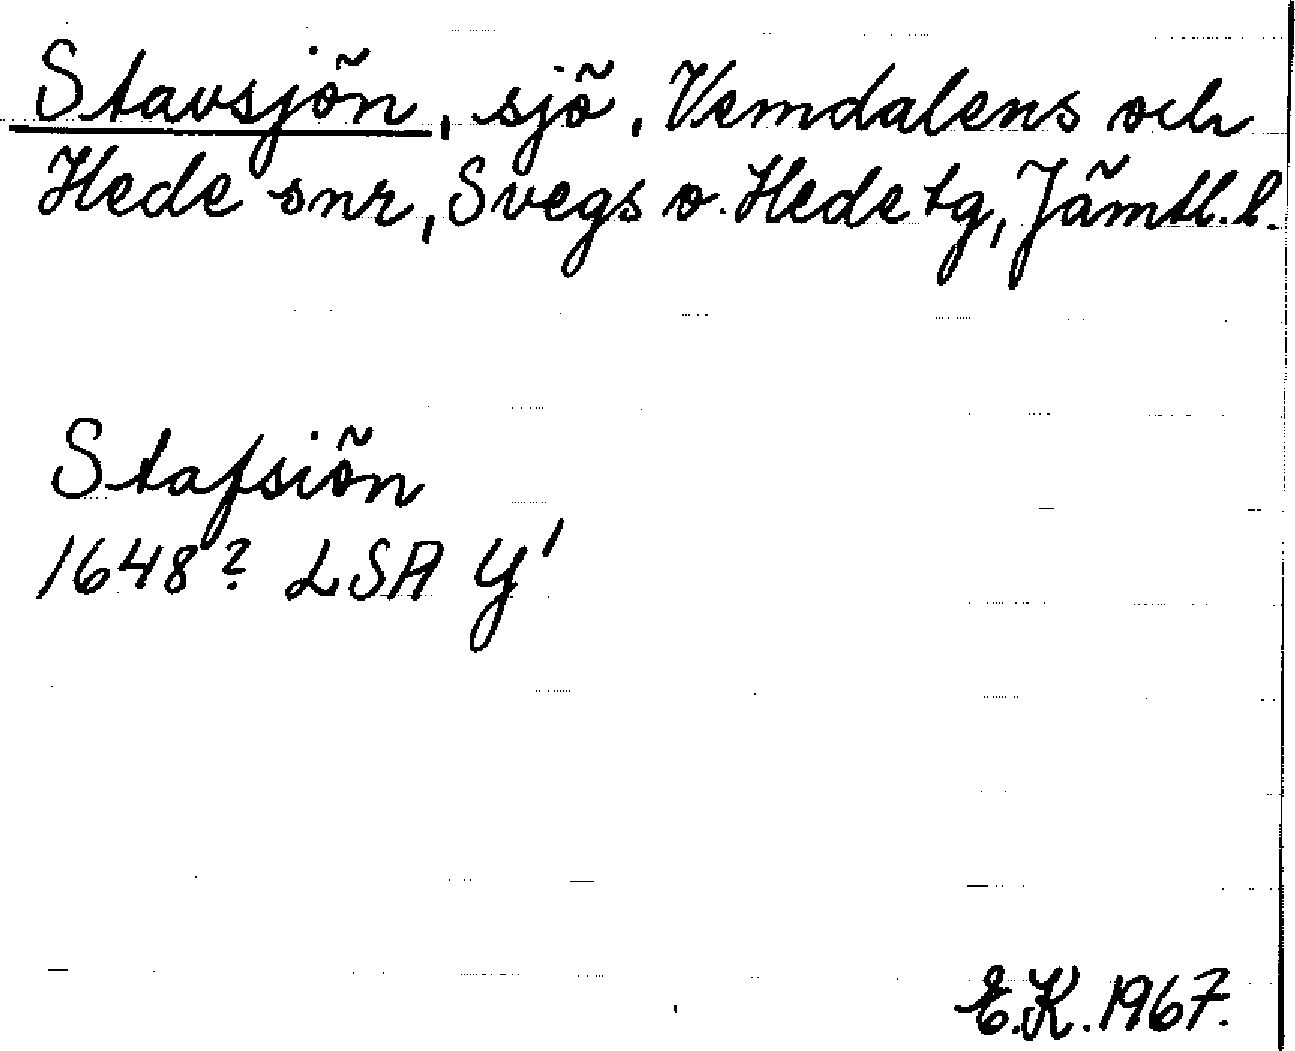 Stavsjön, sjö, Vemdalens och
Hede snr, Svegs o. Hede tg, Jämtl. l.
Stafsiön
1648? LSA Y'
E.K. 1967.